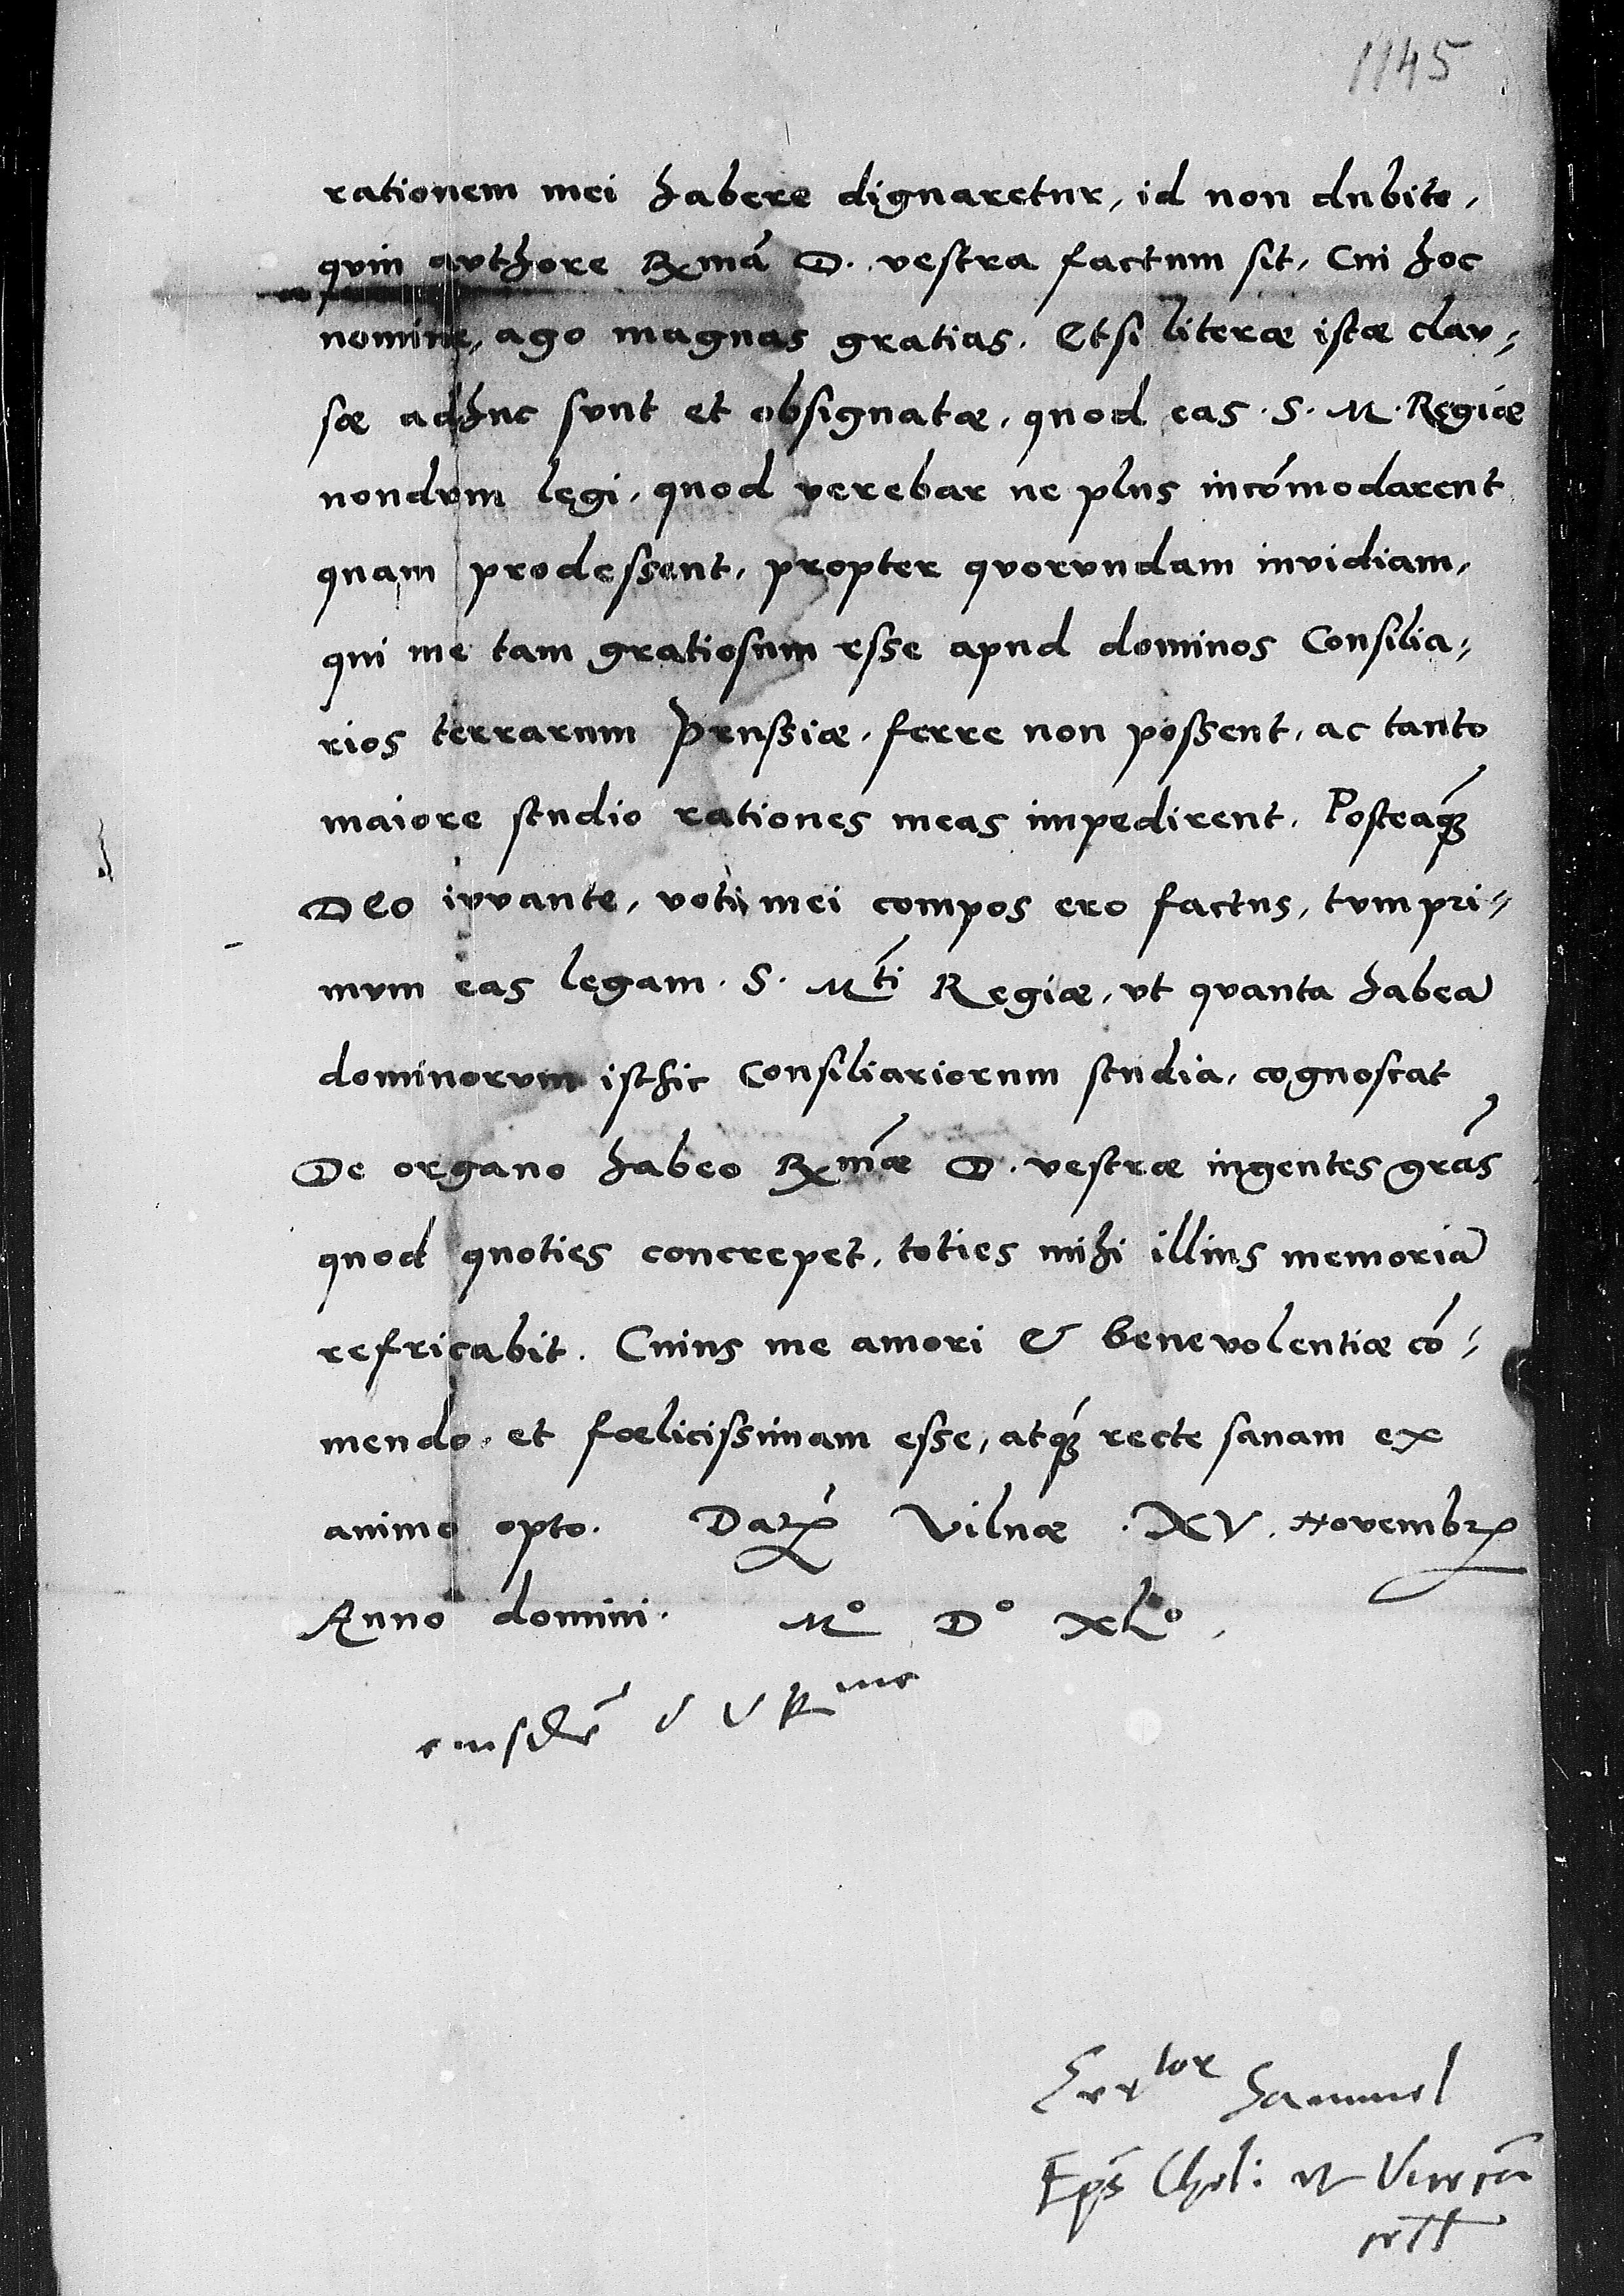 1145
rationem mei habere dignaretur, id non dubito,
quin authore Rxmã D. vestra factum sit, Cui hoc
nomine, ago magnas gratias. Etsi literæ istæ clau-
sæ adhuc sunt et obsignatæ, quod eas S. M. Regiæ
nondum legi, quod verebar ne plus incõmodarent
quam prodessent, propter quorundam invidiam,
qui me tam gratiosum esse apud dominos Consilia-
rios terrarum Prussiæ, ferre non possent, ac tanto
maiore studio rationes meas impedirent. Posteaq3
DEO iuvante, voti mei compos ero factus, tum pri-
mum eas legam S. Mti Regiæ, ut quanta habeã
dominorum isthic Consiliariorum studia, cognoscat
De organo habeo Rxmæ D. vestræ ingentes grãs
quod quoties concrepet, toties mihi illius memoriã
refricabit. Cuius me amori & benevolentiæ cõ-
mendo, et fœlicissimam esse, atq3 recte sanam ex
animo opto. Datꝝ Vilnæ XV. Novembrꝭ
Anno domini. Mº Dº XLº,
eiusdẽ d v Rme
Samuel
Epũs Chel: et